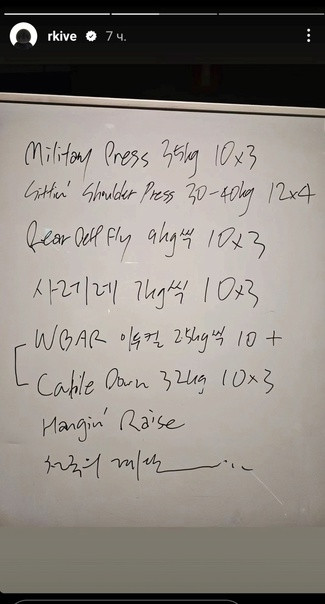 rkive 7 ч.
Military Press 35kg 10x3
Sittin' Shoulder Press 30-40kg 12x4
Rear Delt Fly 9kg씩 10x3
사레레 7kg씩 10x3
WBAR 이두컬 25kg씩 10 +
Cable Down 32kg 10x3
Hangin' Raise
천국의 계단